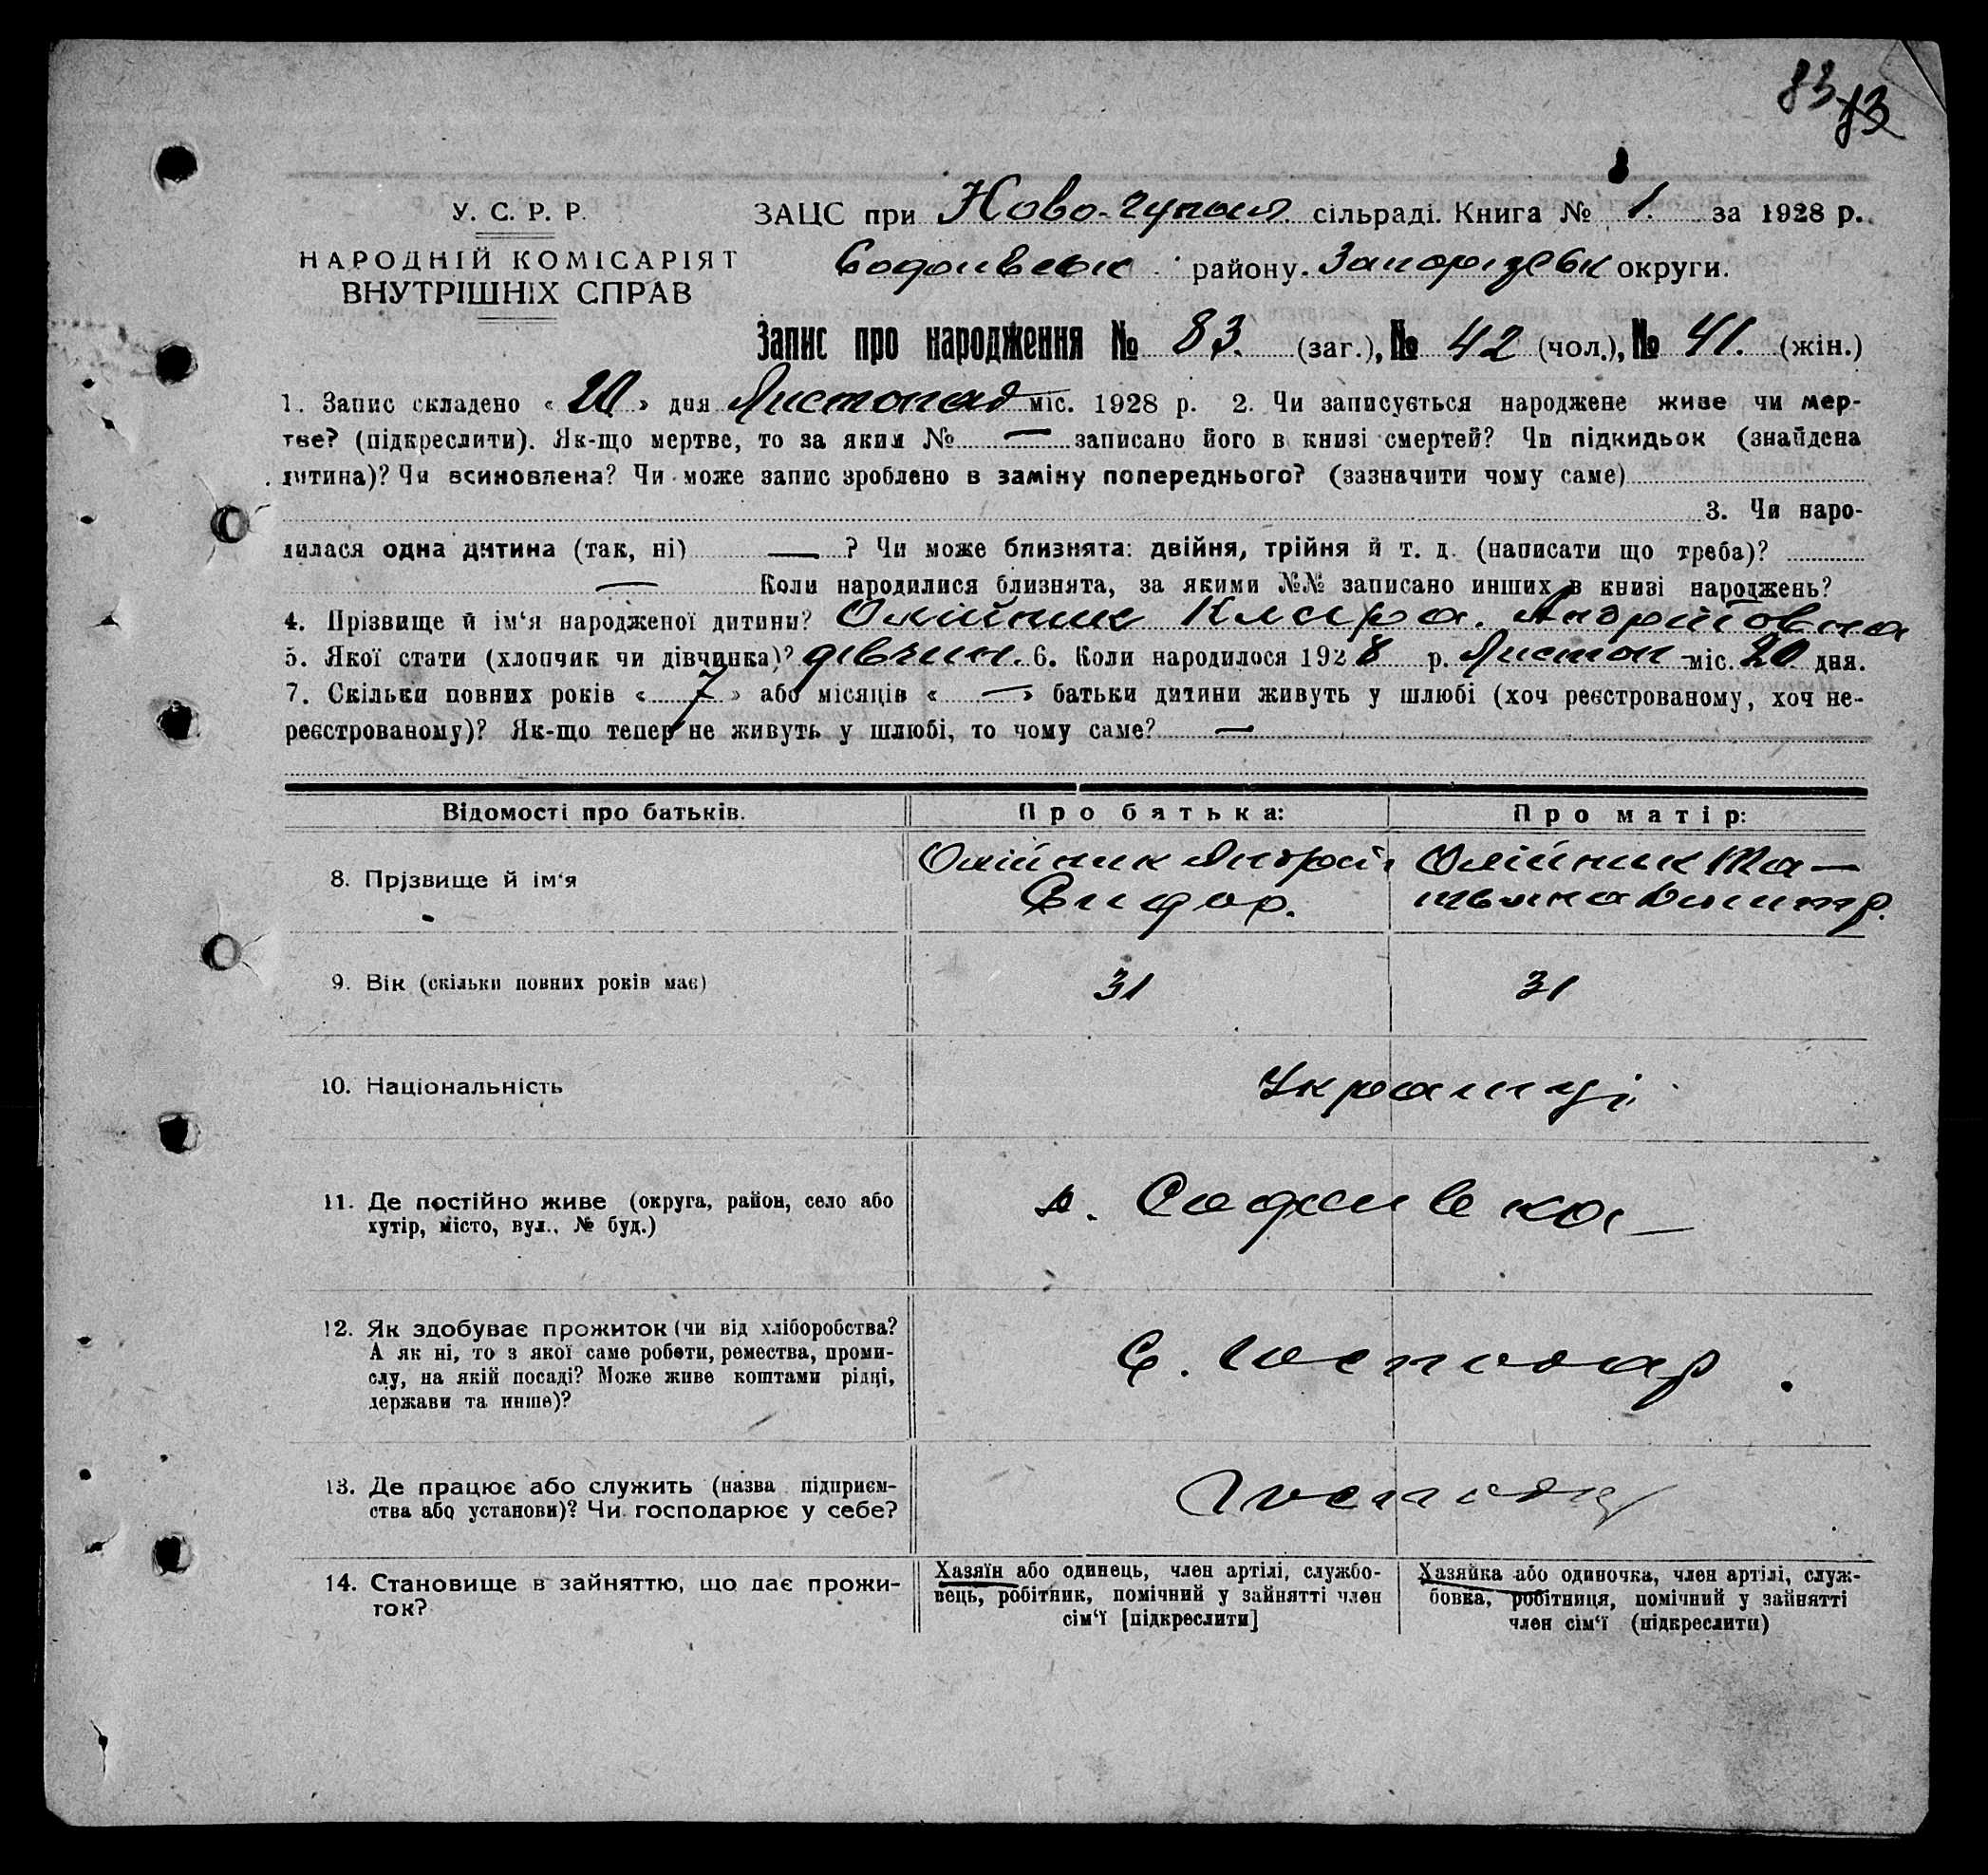 83 83
У. С. Р. Р.
НАРОДНІЙ КОМІСАРІЯТ
ВНУТРІШНІХ СПРАВ
ЗАЦС при Ново- сільраді. Книга № 1. за 1928 р.
району. Запорізськ округи.
Запис про народження № 83. (заг.), № 42 (чол.), № 41. (жін.)
1. Запис складено « 20 » дня Листопад міс. 1928 р. 2. Чи записується народжене живе чи мер-
тве? (підкреслити). Як-що мертве, то за яким № — записано його в книзі смертей? Чи підкидьок (знайдена
дитина)? Чи всиновлена? Чи може запис зроблено в заміну попереднього? (зазначити чому саме)
3. Чи наро-
дилася одна дитина (так, ні) — ? Чи може близнята: двійня, трійня й т. д. (написати що треба)?
— Коли народилися близнята, за якими №№ записано инших в книзі народжень?
4. Прізвище й ім‘я народженої дитини? Олійник Клара. Андрійовна
5. Якої стати (хлопчик чи дівчинка)? дівчин. 6. Коли народилося 1928 р. Листоп міс. 20 дня.
7. Скільки повних років « 7 » або місяців « — » батьки дитини живуть у шлюбі (хоч реєстрованому, хоч не-
реєстрованому)? Як-що тепер не живуть у шлюбі, то чому саме? —
Відомості про батьків.
Про батька:
Про матір:
8. Прізвище й ім‘я
Олійник Андрій
Сидор.
Олійник Та—
тьяна Дмитр.
9. Вік (скільки повних років має)
31
31
10. Національність
Украинці
11. Де постійно живе (округа, район, село або
хутір, місто, вул., № буд.)
12. Як здобуває прожиток (чи від хліборобства?
А як ні, то з якої саме роботи, ремества, проми-
слу, на якій посаді? Може живе коштами рідні,
держави та инше)?
С. Господар.
13. Де працює або служить (назва підприєм-
ства або установи)? Чи господарює у себе?
14. Становище в зайняттю, що дає прожи-
ток?
Хазяїн або одинець, член артілі, службо-
вець, робітник, помічний у зайнятті член
сім‘ї [підкреслити]
Хазяйка або одиночка, член артілі, служ-
бовка, робітниця, помічний у зайнятті
член сім‘ї (підкреслити)